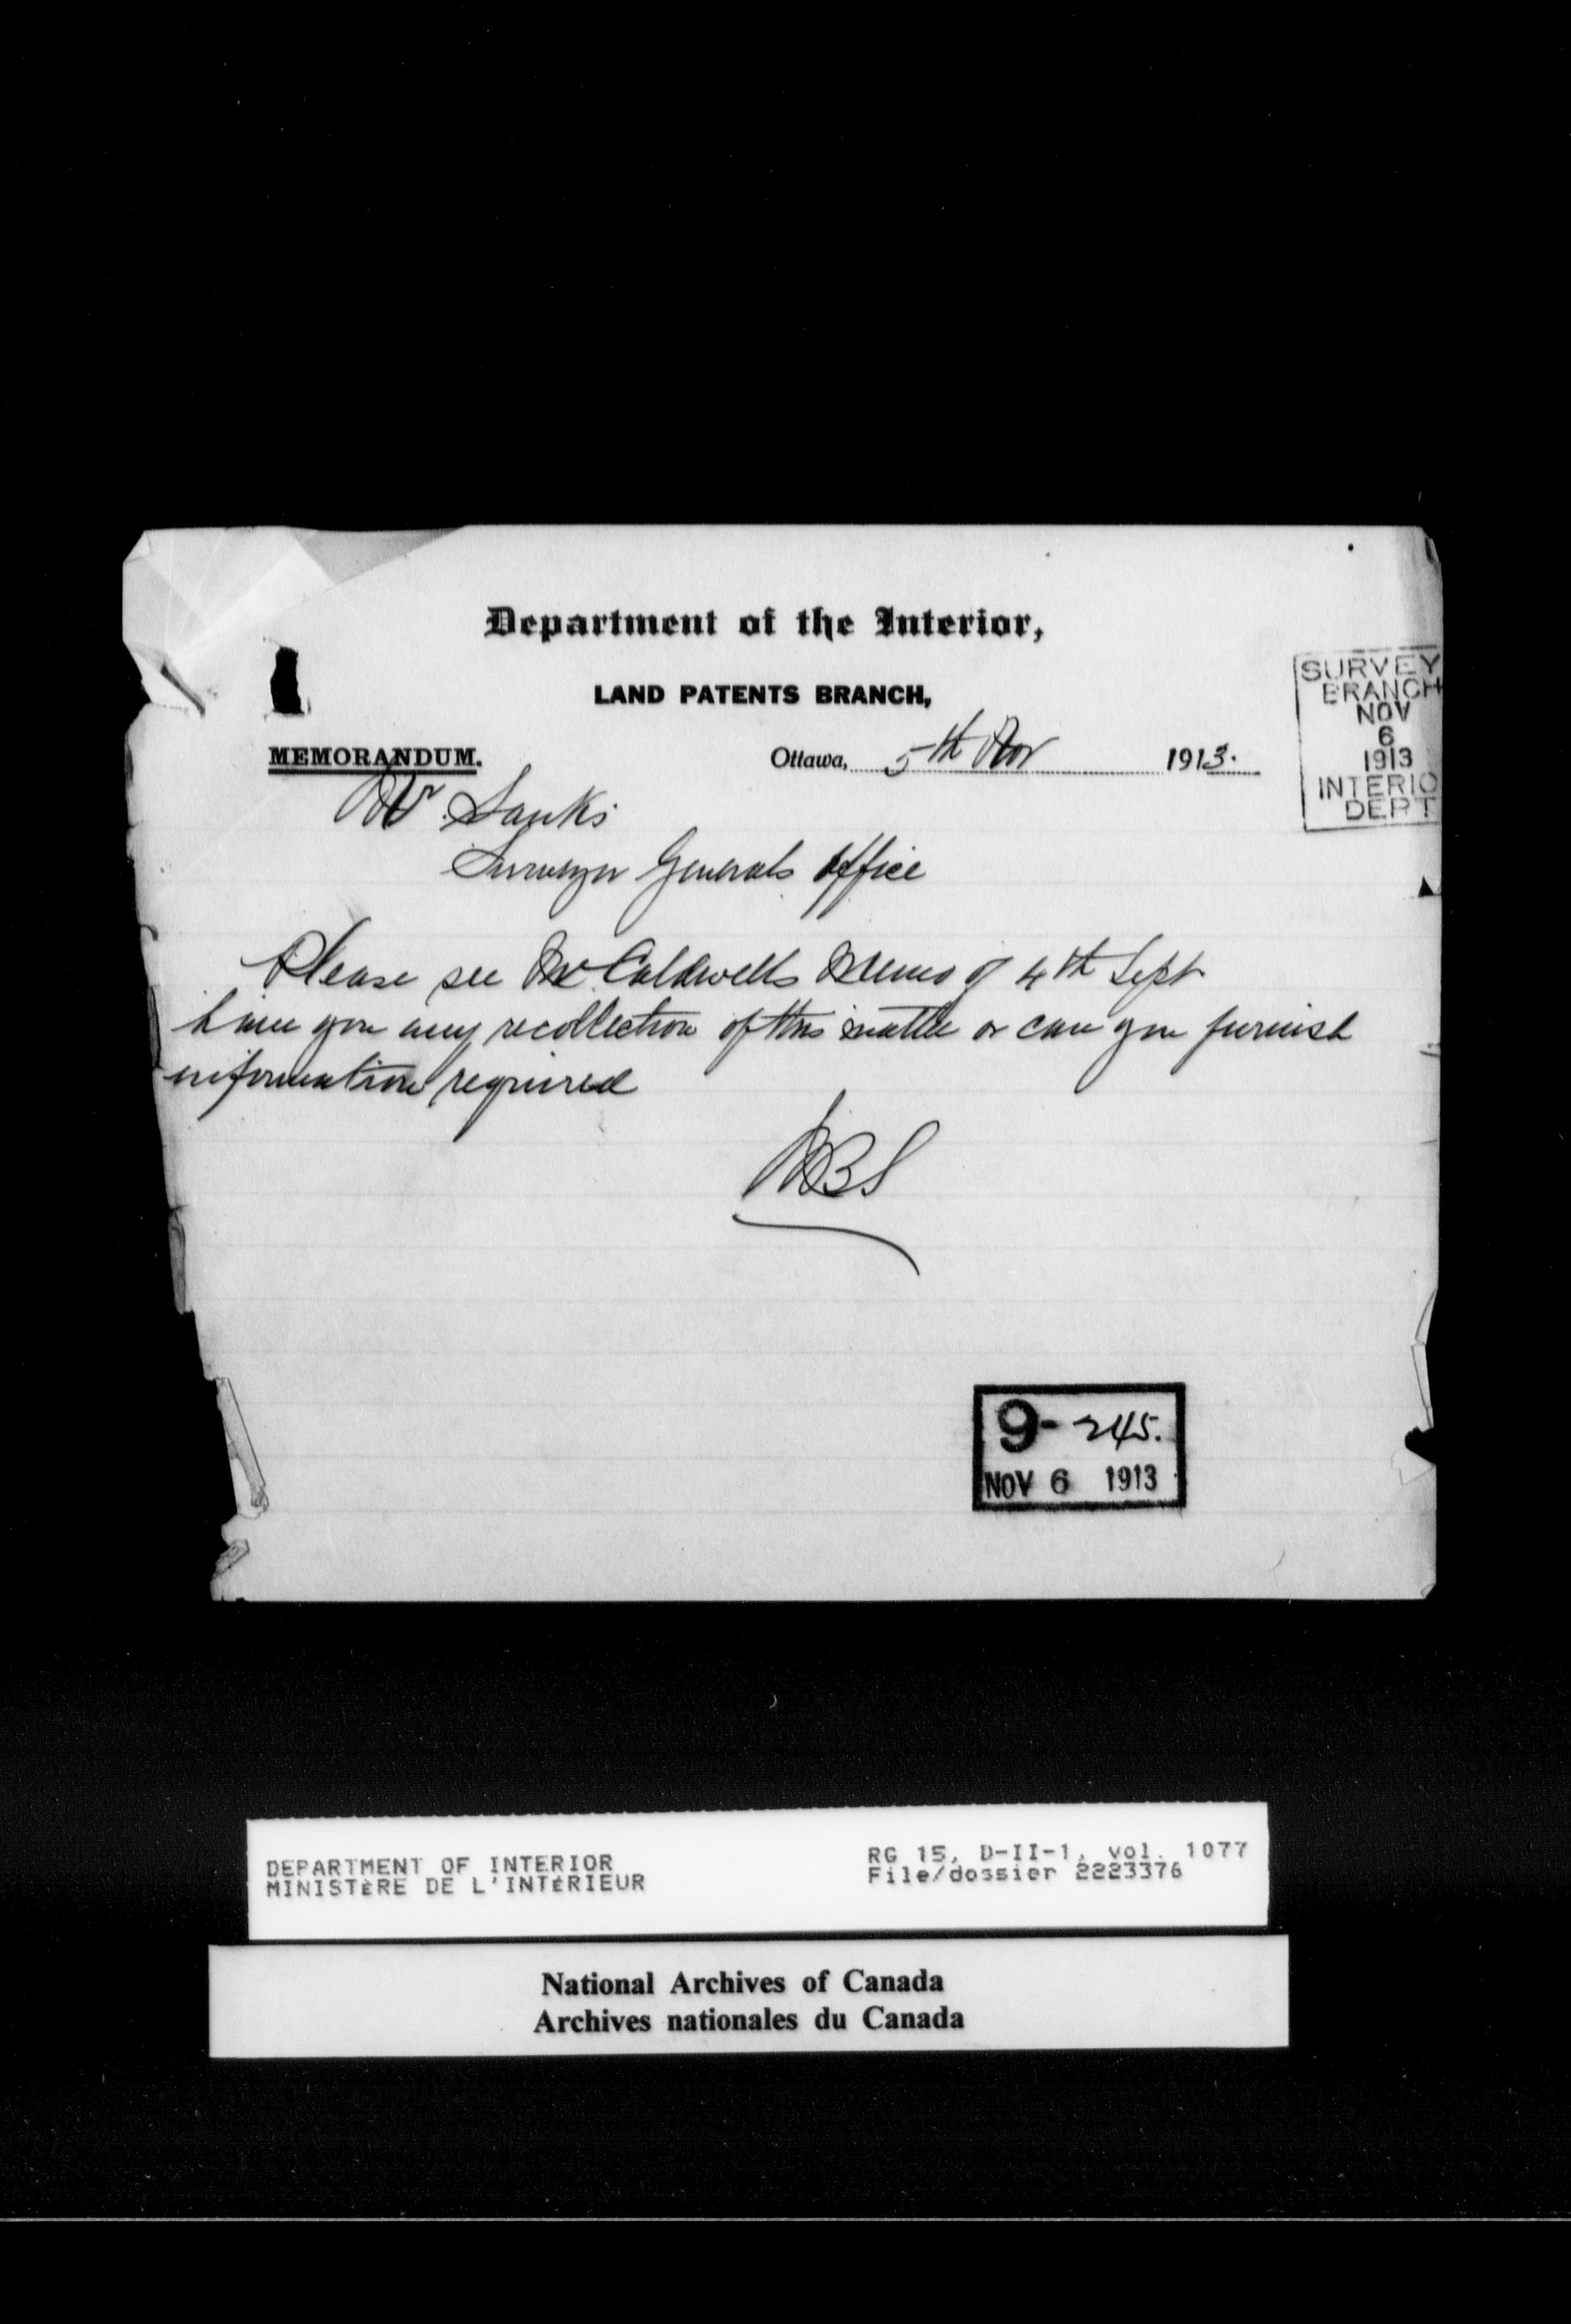 Department of the Interior,
LAND PATENTS BRANCH,
MEMORANDUM.
Ottawa, 5th Nov 1913.
SURVEY
BRANCH
NOV
6
1913
INTERIO
DEPT
Mr.
Surveyor Generals Office
Please see Mr Caldwells Memo of 4th Sept
have you any recollection of this matter or can you furnish
information required
9-245.
NOV 6 1913
DEPARTMENT OF INTERIOR
MINISTÈRE DE L'INTÉRIEUR
RG 15, D-II-1, vol. 1077
File/dossier 2223376
National Archives of Canada
Archives nationales du Canada